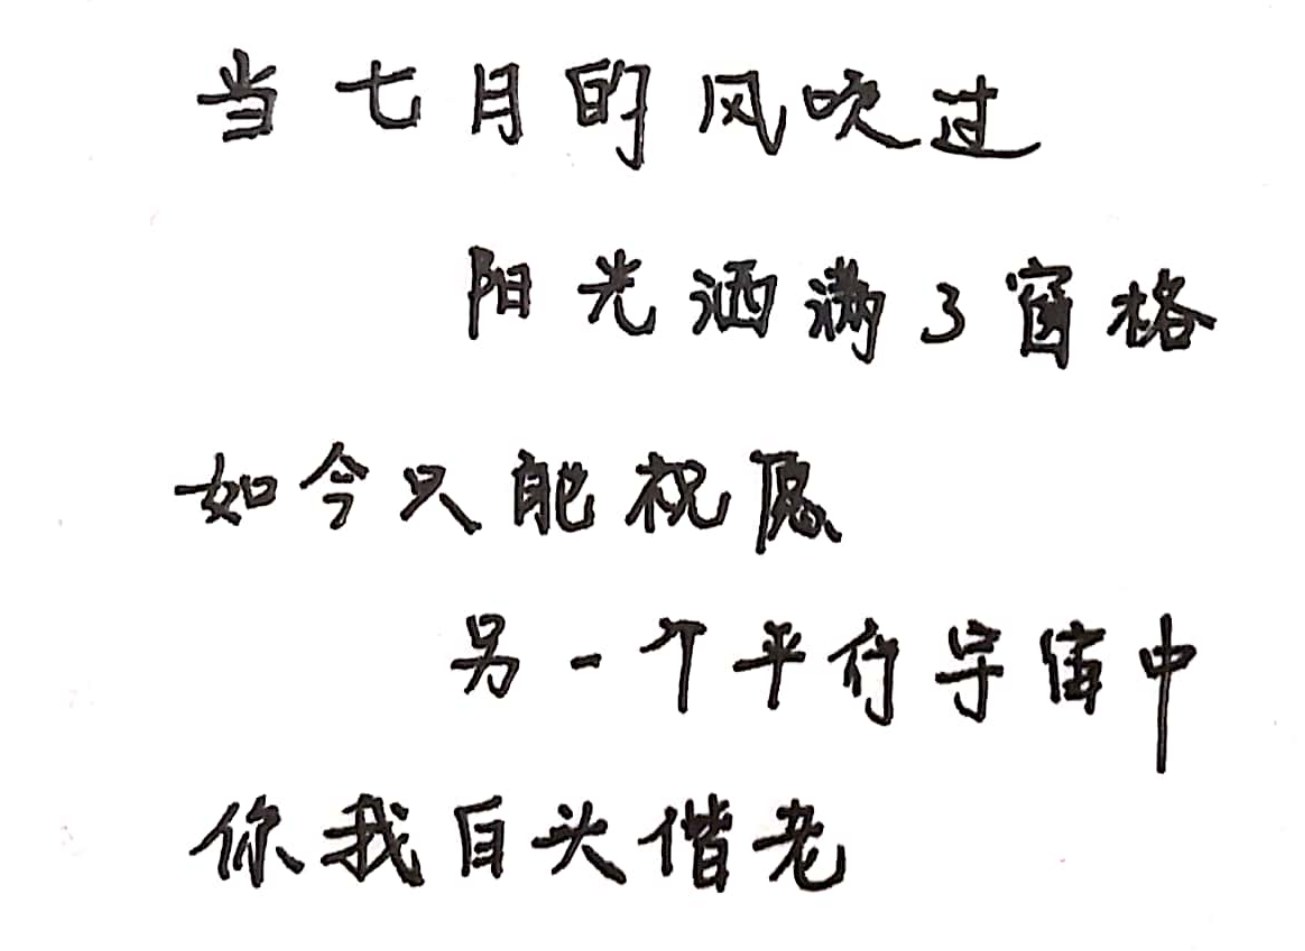 当七月的风吹过
阳光洒满了窗格
如今只能祝愿
另一个平行宇宙中
你我白头偕老